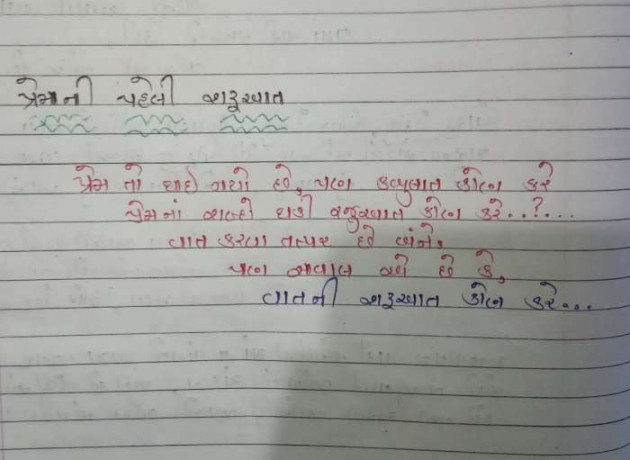 પ્રેમની પહેલી શરૂઆત
પ્રેમ તો થઇ ગયો છે, પણ કબુલાત કોણ કરે
પ્રેમનાં શબ્દો થકી રજુઆત કોણ કરે..?...
વાત કરવા તત્પર છે બંને,
પણ સવાલ એ છે કે,
વાતની શરૂઆત કોણ કરે...